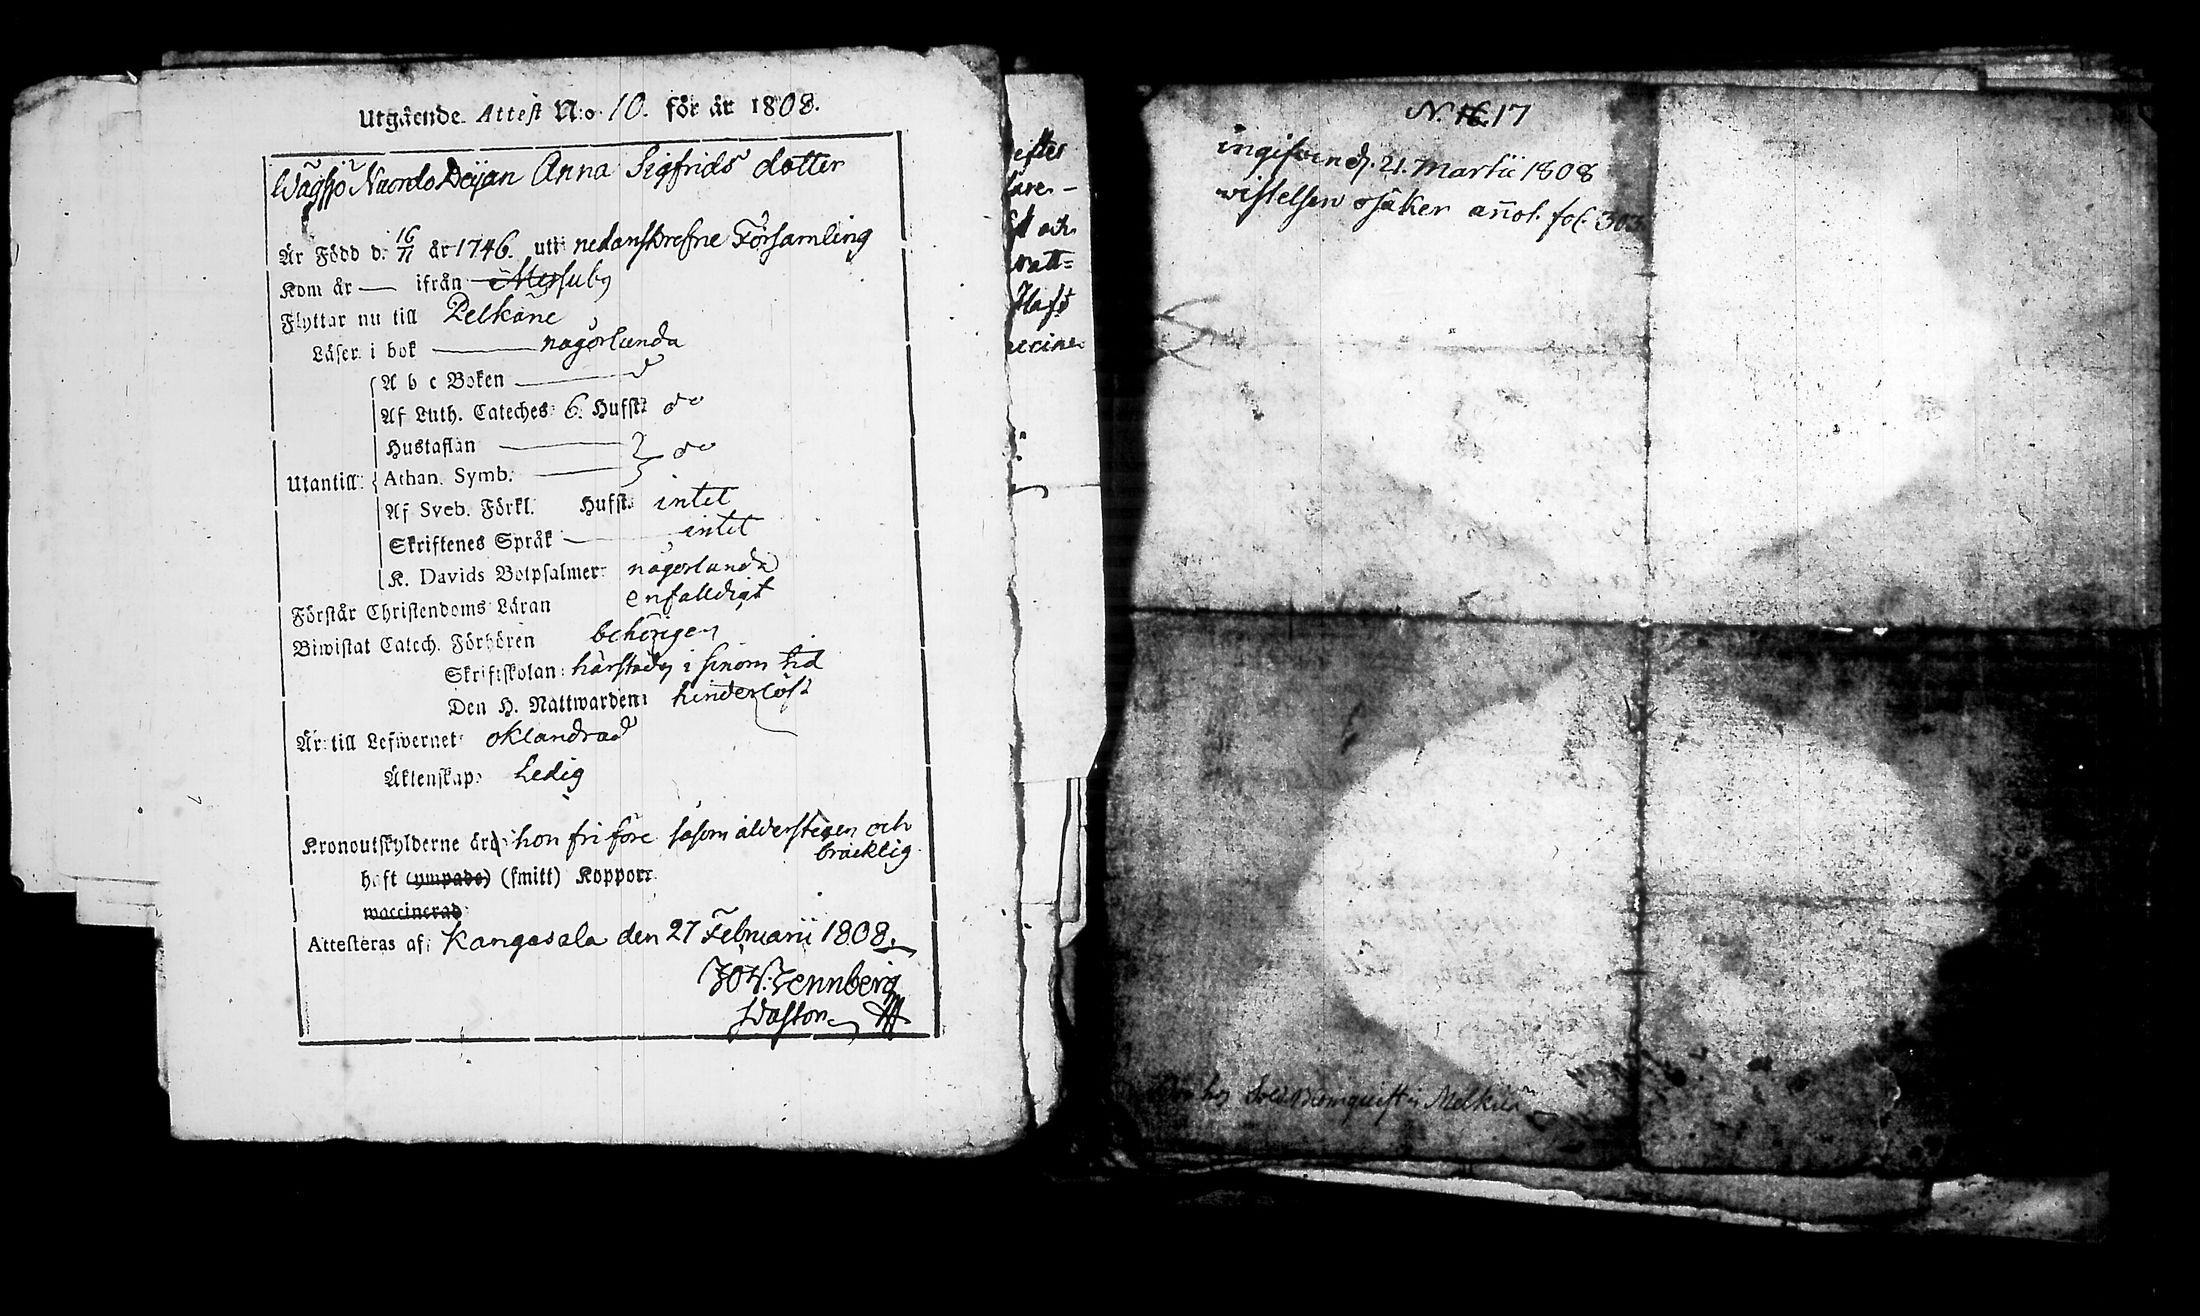 Utgående Attest N:o 10. för år 1808.
Wågsjö Nuordo Deijan Anna Sigfrids dotter
Är Född d. 16/11 år 1746. uti nedanskrefne Församling
Kom år — ifrån
Flyttar nu till Pelkäne
Läser i bok — någorlunda
A b c Boken — d
Af Luth. Cateches: 6. Hufst: do
Hustaflan — } do
Utantill: Athan. Symb. —
Af Sveb. Förkl. Hufst: intet
Skriftenes Språk — intet
K. Davids Botpsalmer: någorlunda
Förstår Christendoms Läran enfalldigt
Biwistat Catech. Förhören behörigen
Skriftskolan: härstädes i sinom tid
Den H. Nattwarden: hinderlöst
Är till Lefwernet: oklandrad
Äktenskap: Ledig
Kronoutskylderne är hon fri före såsom ålderstegen och
bräcklig
haft (ympade) (smitt) Koppor
waccinerad
Attesteras af: Kangasala den 27 Februarii 1808.
Wennberg
Pastor
efter
och
N. 16. 17
ingifven d. 21. Martii 1808
vistelsen osäker annot. fol. 303.
hos Sold. Blomquist i Mälkilä